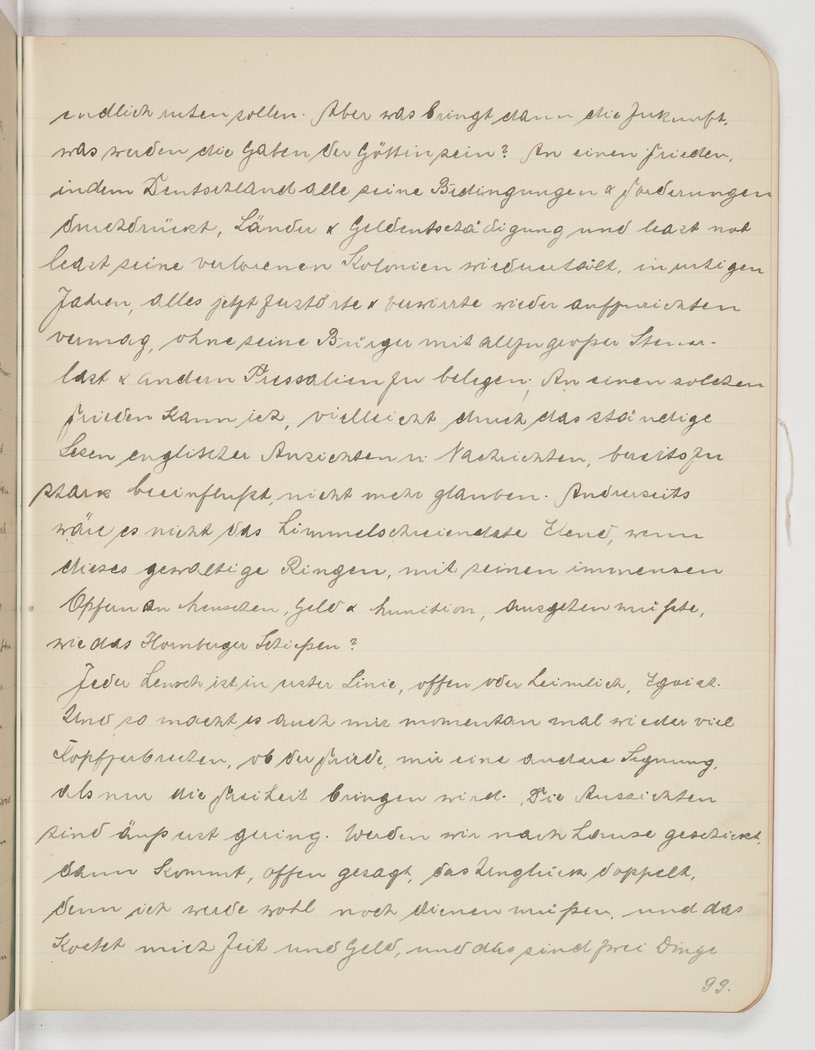 endlich ruten sollen. Aber was bringt dann die Zukunft,
was werden die Gaben der Göttin sein? An einen Frieden,
indem Deutschland alle seine Bedingungen & Forderungen
durchdrückt, Länder & Geldentschädigung und last not
least seine verlorenen Kolonien wiedererhält, in wenigen
Jahren, alles jetzt zerstörte & verwirrte wieder aufzurichten
vermag, ohne seine Bürger mit allzu großer Steuer-
last & andern Pressalien zu belegen; An einen solchen
Frieden kann ich, vielleicht durch das ständige
Lesen englischer Ansichten u. Nachrichten, bereits zu
stark beeinflußt, nicht mehr glauben. Anderseits
wäre es nicht das himmelschreiendste Elend, wenn
dieses gewaltige Ringen, mit seinen immensen
Opfern an Menschen, Geld & Munition, ausgehen müßte,
wie das Hornberger Schießen?
Jeder Mensch ist in erster Linie, offen oder heimlich, Egoist.
Und so macht es auch mir momentan mal wieder viel
Kopfzerbrechen, ob der Friede, mir eine andere Segnung,
als nur die Freiheit bringen wird. Die Aussichten
sind äußerst gering. Werden wir nach Hause geschickt,
dann kommt, offen gesagt, das Unglück doppelt,
denn ich werde wohl noch dienen müßen, und das
kostet mich Zeit und Geld, und das sind zwei Dinge
99.